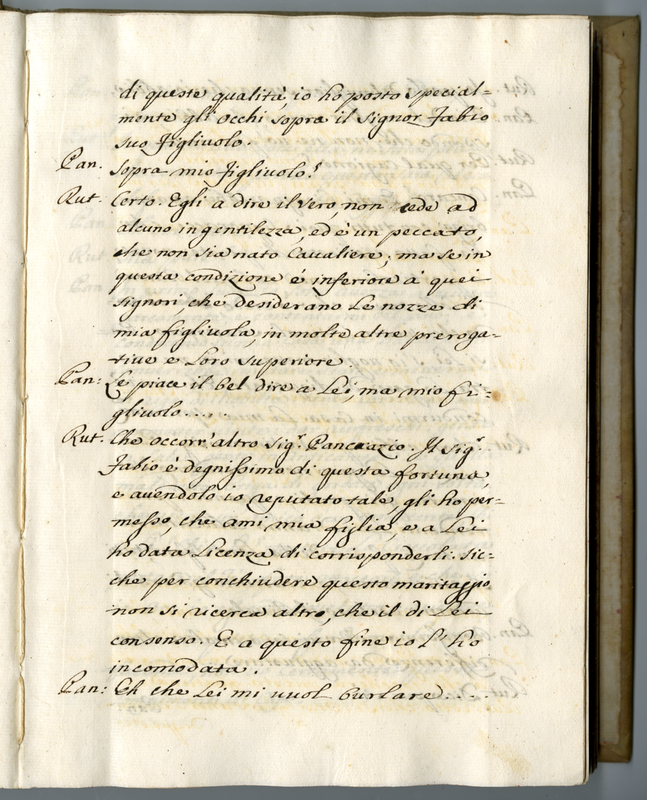 di queste qualità, io ho posto special=
mente gli occhi sopra il Signor Fabio
suo Figliuolo.
Pan. Sopra mio Figliuolo?
Rut. Certo. Egli a dire il vero, non cede ad
alcuno in gentilezza, ed è un peccato,
che non sia nato Cavaliere; ma se in
questa condizione è inferiore à quei
Signori, che desiderano le nozze di
mia figliuola, in molte altre preroga=
tive è Loro superiore.
Pan: Le piace il bel dire a Lei, ma mio fi=
gliuolo....
Rut. Che occorr'altro Sig.r Pancrazio. Il Sig.r
Fabio è degnissimo di questa fortuna,
e avendolo io reputato tale, gli ho per=
messo, che ami mia figlia, e a Lei
ho data Licenza di corrisponderli. Sic=
che per conchiudere questo maritaggio
non si ricerca altro, che il di Lei
consenso. E a questo fine io l'ho
incomodata.
Pan: Eh che Lei mi vuol burlare....